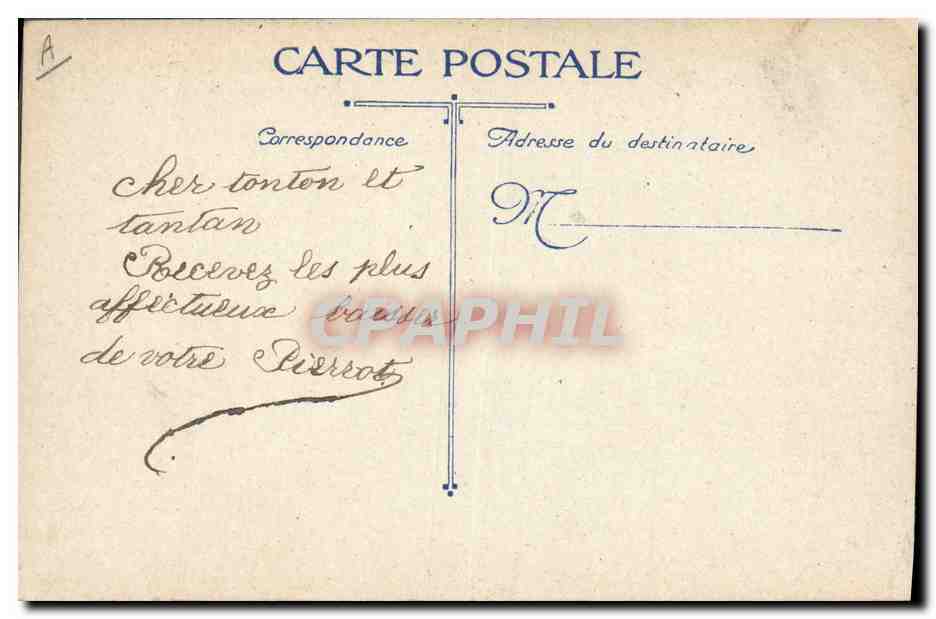 A
CARTE POSTALE
Correspondance
Adresse du destinataire
cher tonton et
tantan
Recevez les plus
affectueux baisers
de votre Pierrot
M
CPAPHIL